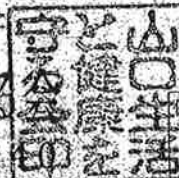 山口生活
と健康を
守る会印